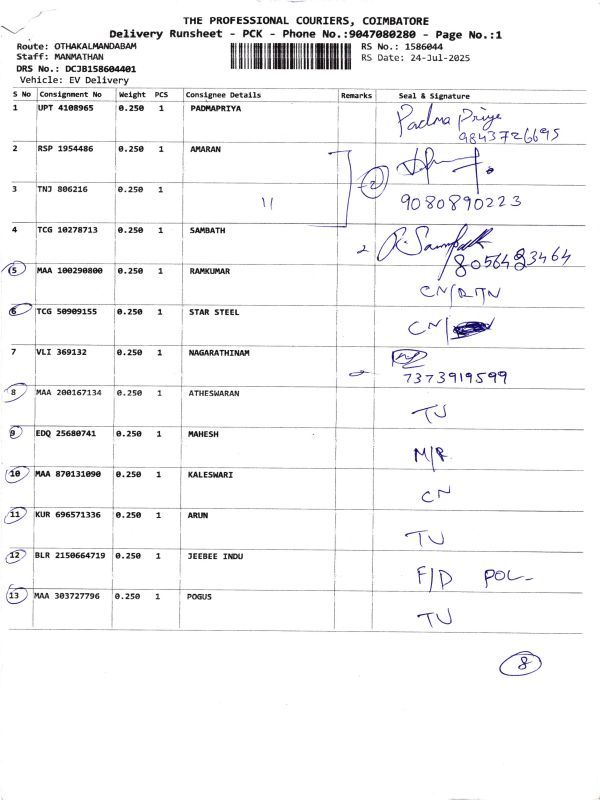 THE PROFESSIONAL COURIERS, COIMBATORE
Delivery Runsheet - PCK - Phone No.:9047080280 - Page No.:1
Route: OTHAKALMANDABAM RS No.: 1586044
Staff: MANMATHAN RS Date: 24-Jul-2025
DRS No.: DCJB158604401
Vehicle: EV Delivery
S No Consignment No Weight PCS Consignee Details Remarks Seal & Signature
1 UPT 4108965 0.250 1 PADMAPRIYA Padma Priya
9843726695
2 RSP 1954486 0.250 1 AMARAN 2
3 TNJ 806216 0.250 1 11 9080890223
4 TCG 10278713 0.250 1 SAMBATH 2 R. Sambath
8056483464
5 MAA 100290800 0.250 1 RAMKUMAR CN/RTN
6 TCG 50909155 0.250 1 STAR STEEL CN/
7 VLI 369132 0.250 1 NAGARATHINAM
7373919599
8 MAA 200167134 0.250 1 ATHESWARAN TU
9 EDQ 25680741 0.250 1 MAHESH M/R
10 MAA 870131090 0.250 1 KALESWARI CN
11 KUR 696571336 0.250 1 ARUN TU
12 BLR 2150664719 0.250 1 JEEBEE INDU F/D POL-
13 MAA 303727796 0.250 1 POGUS TU
8